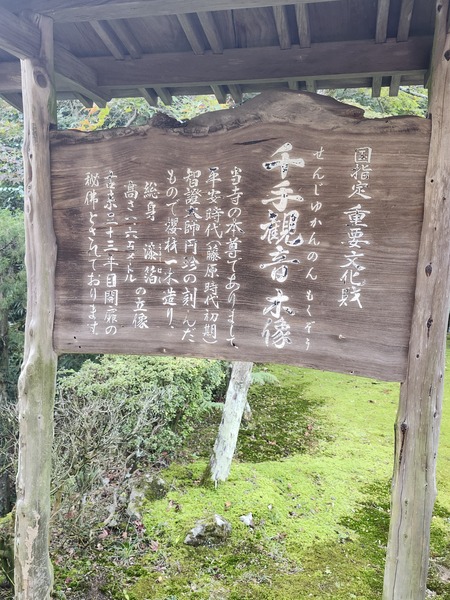 国指定 重要文化財
せんじゆかんのんもくぞう
千手觀音木像
当寺の本尊でありまして
平安時代(藤原時代初期)
智證大師円珍の刻んだ
もので櫻材一木造り、
総身 漆箔
高さ メートル
の立像
三十三年目開扉の
秘佛とされております。